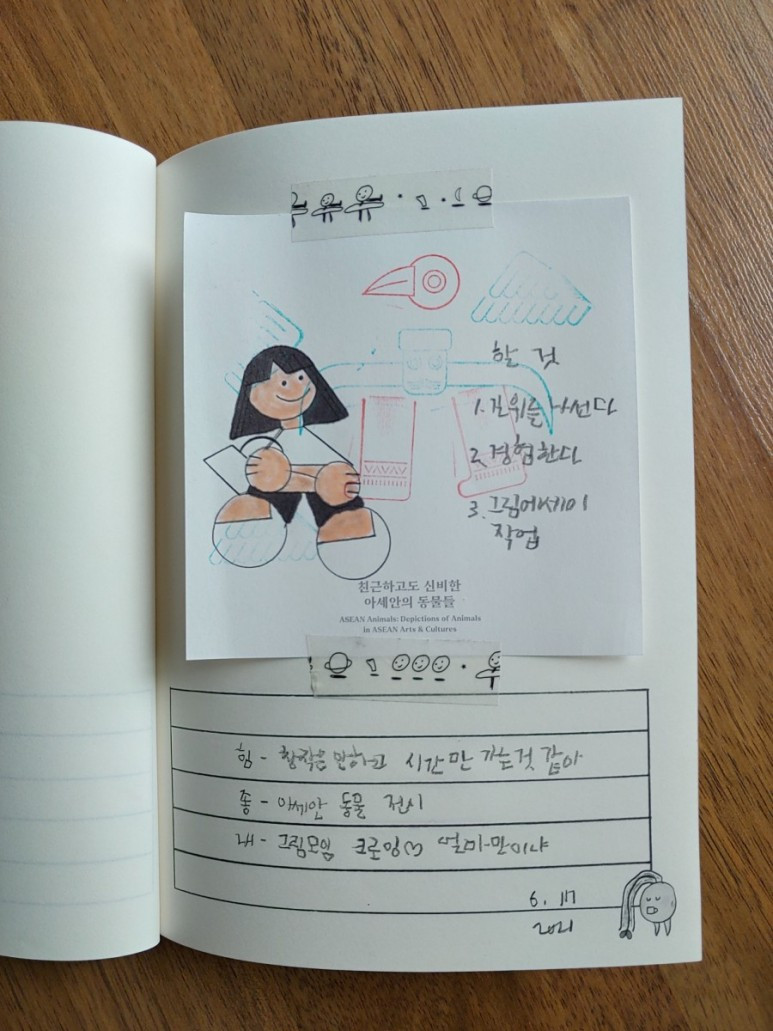 할 것
1. 길위를 나선다
2. 경험한다
3. 그림에세이
작업
친근하고도 신비한
아세안의 동물들
ASEAN Animals: Depictions of Animals
in ASEAN Arts & Cultures
힘 - 창작은 안하고 시간만 가는것 같아
좋 - 아세안 동물 전시
내 - 그림모임 크로잉♡ 얼마만이냐
6. 17
2021